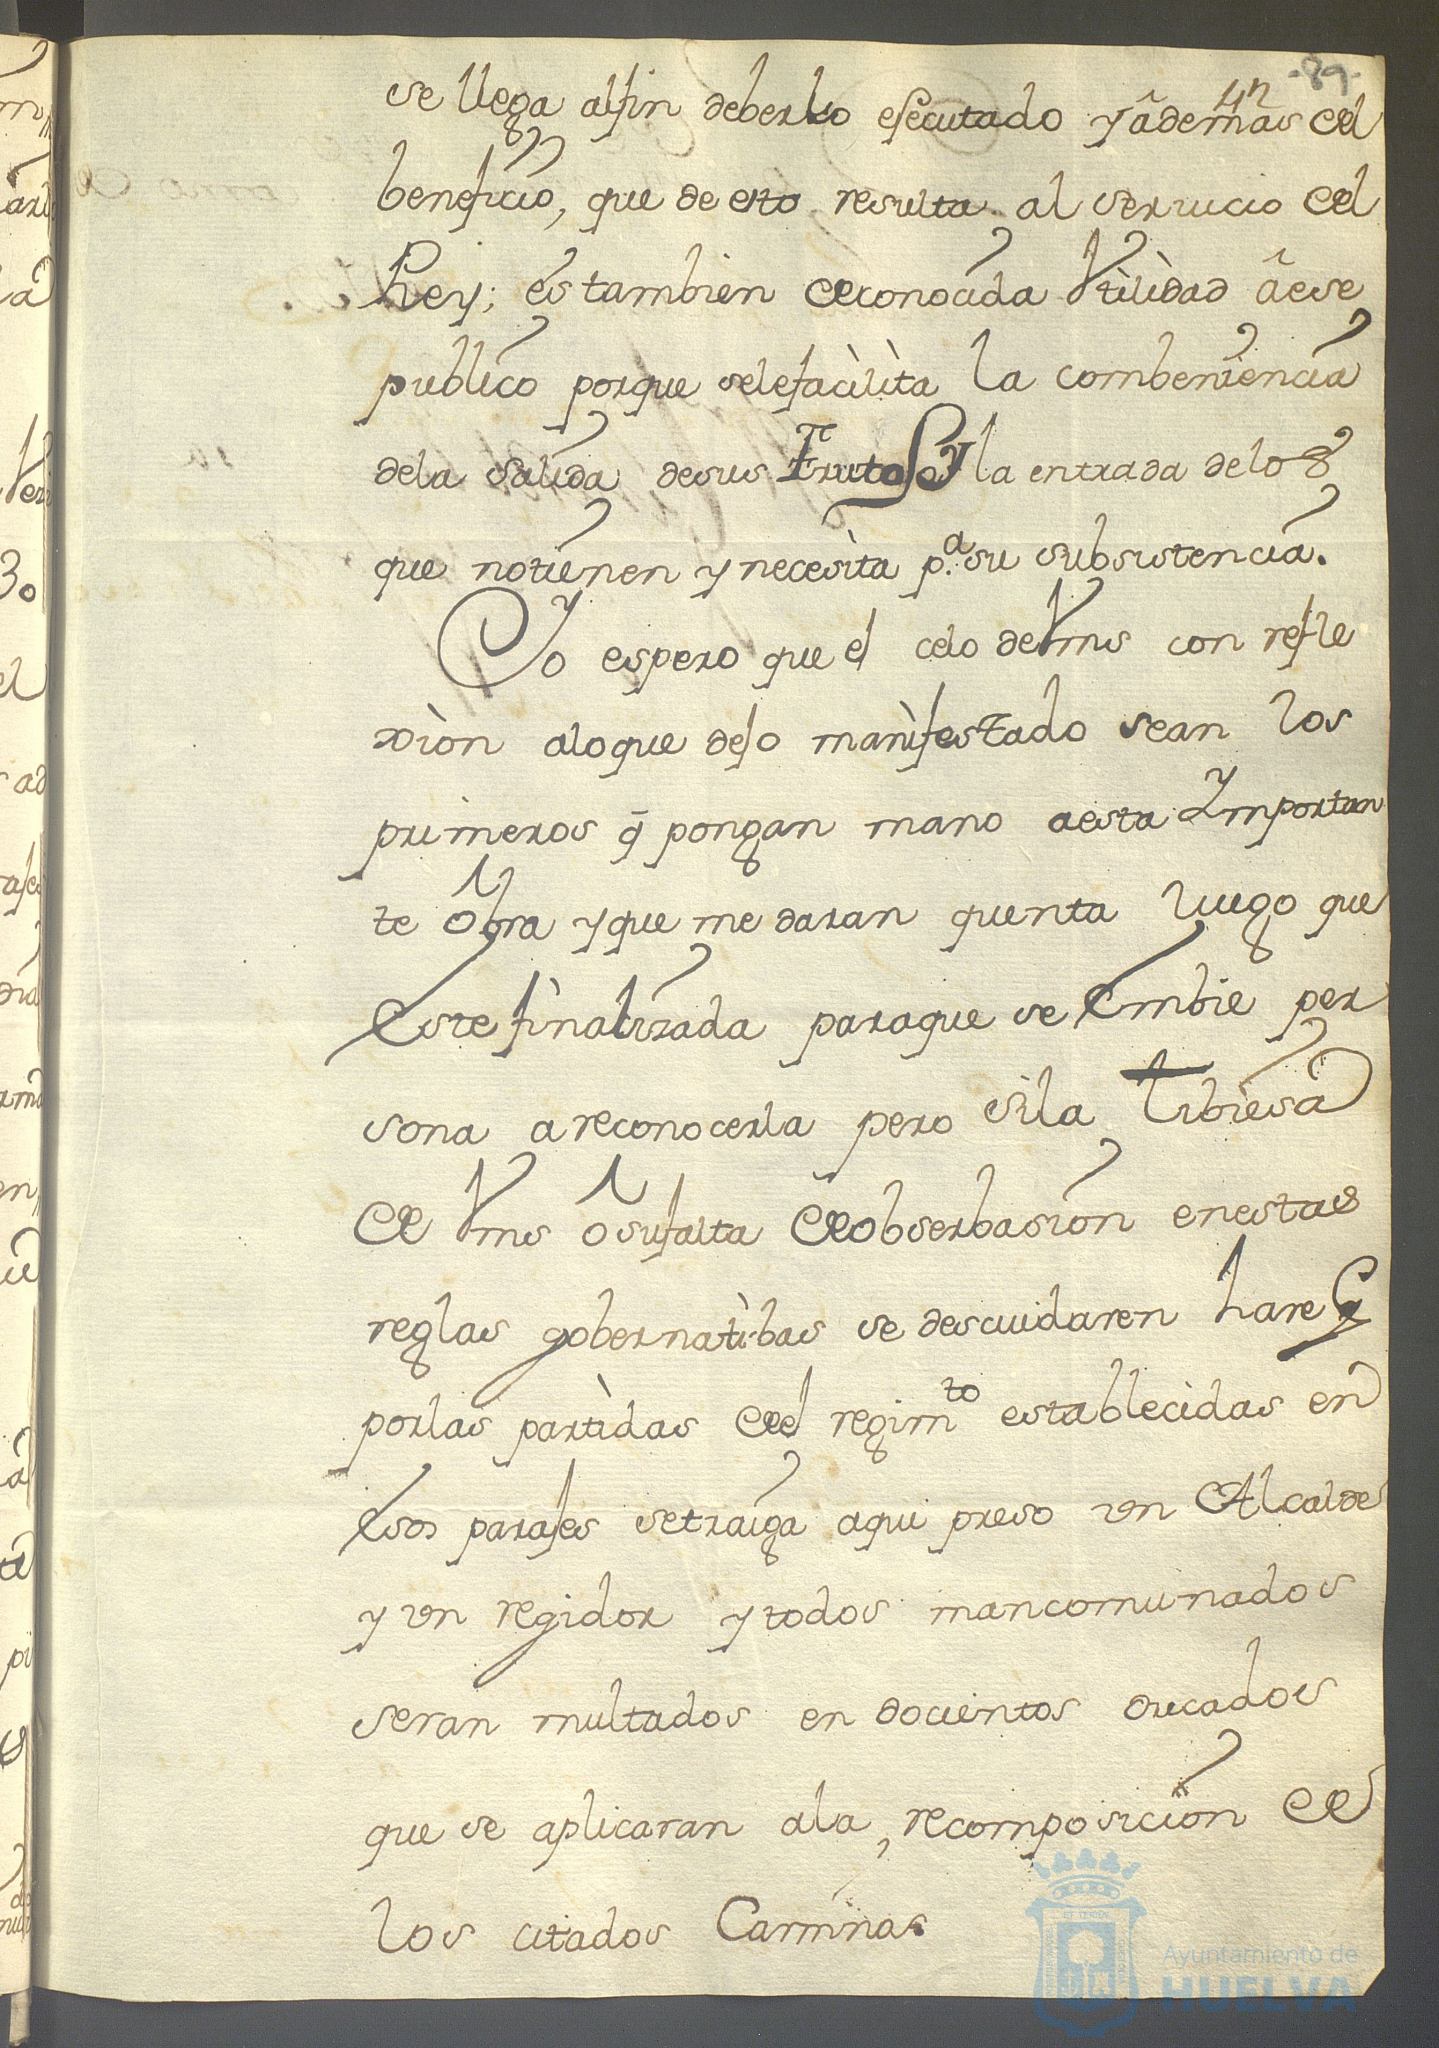 -89-
se llega alfin deberlo esecutado y âdemas del
beneficio, que de esto resulta al seruicio del
Rey; es tambien deconocida Vtilidad âese
publico porque selefacilita la combeniencia
dela salida desus Frutos y la entrada delos
que notienen y necesita p.ª su subsistencia.
Yo espero que el celo deVms con refle
xion aloque dejo manifestado sean los
primeros q̄ pongan mano aesta Ymportan
te obra y que me daran quenta luego que
este finalizada paraque se embie per
sona a reconocerla pero sila tibiesa
de Vms ô sufalta deobserbasion enestas
reglas gobernatibas se descuidaren hare q
porlas partidas del regimto establecidas en
esos parajes setraiga aqui preso vn Alcalde
y vn regidor y todos mancomunados
seran multados en docientos ducados
que se aplicaran ala recomposicion de
los citados Caminos.
Ayuntamiento de
HUELVA